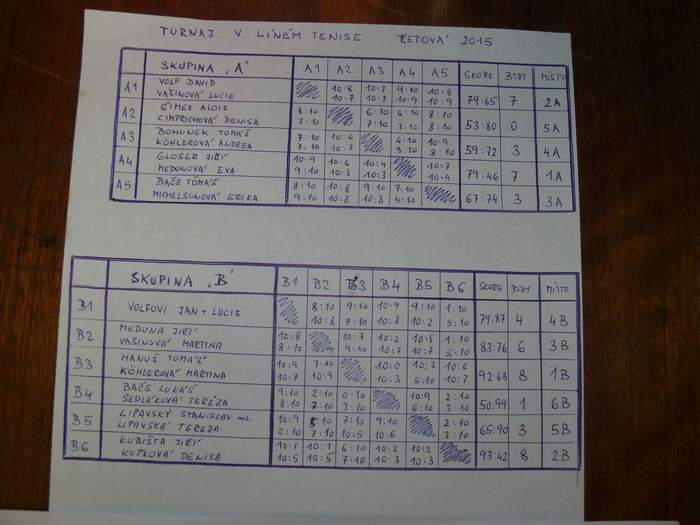 TURNAJ V LÍNÉM TENISE ŘETOVÁ 2015
SKUPINA „A" A1 A2 A3 A4 A5 SKORE BODY MÍSTO
A1 VOLF DAVID 10:8 10:7 9:10 10:8
VAŠINOVÁ LUCIE 10:7 10:7 10:9 10:9 79:65 7 2A
A2 ŠIMEK ALOIS 8:10 6:10 6:10 8:10
CIMPRICHOVÁ DENISA 7:10 7:10 3:10 8:10 53:80 0 5A
A3 BOHUNEK TOMÁŠ 7:10 10:6 4:10 10:9
KÖHLEROVÁ ANDREA 7:10 10:7 3:10 8:10 59:72 3 4A
A4 GLOSER JIŘÍ 10:9 10:6 10:4 10:7
MEDUNOVÁ EVA 9:10 10:3 10:3 10:4 79:46 7 1A
A5 BAČE TOMÁŠ 8:10 10:8 9:10 7:10
MICHELSONOVÁ ERIKA 9:10 10:8 10:8 4:10 67:74 3 3A
SKUPINA „B" B1 B2 B3 B4 B5 B6 SKORE BODY MÍSTO
B1 VOLFOVI JAN + LUCIE 8:10 9:10 10:9 9:10 1:10
10:8 7:10 10:8 10:2 5:10 79:87 4 4B
B2 MEDUNA JIŘÍ 10:8 10:7 10:2 10:5 1:10
VAŠINOVÁ MARTINA 8:10 9:10 10:7 10:7 5:10 83:76 6 3B
B3 HANUŠ TOMÁŠ 10:9 7:10 10:0 10:7 10:6
KÖHLEROVÁ MARTINA 10:7 10:9 10:3 5:10 10:7 92:68 8 1B
B4 BAČE LUKÁŠ 9:10 2:10 0:10 10:9 2:10
SEDLÁKOVÁ TEREZA 8:10 7:10 3:10 6:10 3:10 50:99 1 6B
B5 LIPAVSKÝ STANISLAV ml. 10:9 5:10 7:10 9:10 2:10
LIPAVSKÁ TEREZA 2:10 7:10 10:5 10:6 3:10 65:90 3 5B
B6 KUBIŠTA JIŘÍ 10:1 10:1 6:10 10:2 10:2
KUPKOVÁ DENISA 10:5 10:5 7:10 10:3 10:3 93:42 8 2B